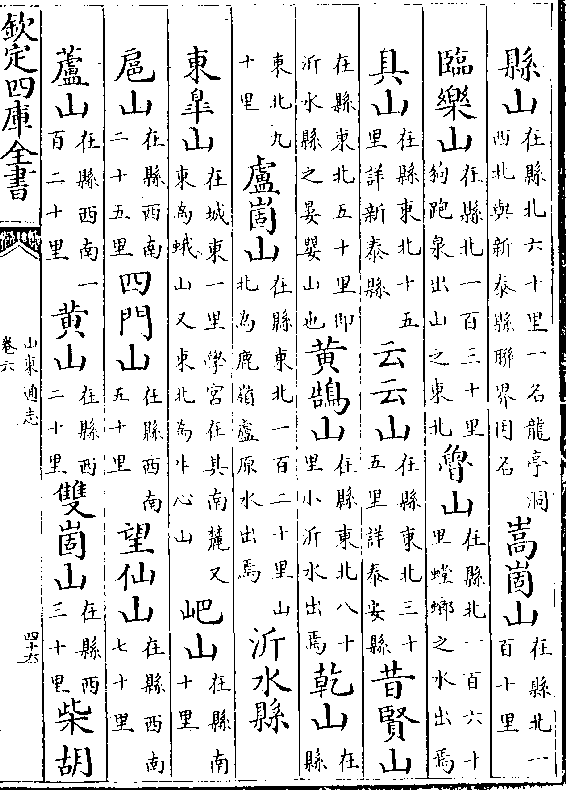 縣山在縣北六十里一名龍亭洞西北與新泰縣聯界因名嵩崮山在縣北一百十里
臨樂山在縣北一百三十里狗跑泉出山之東北魯山在縣北一百六十里螳螂之水出焉
具山在縣東北十五里詳新泰縣云云山在縣東北三十五里詳泰安縣昔賢山
在縣東北五十里即沂水縣之晏嬰山也黄鵠山在縣東北八十里小沂水出焉乾山在縣
東北九十里盧崮山在縣東北一百二十里山北為鹿嶺盧原水出焉沂水縣
東臯山在城東一里學宫在其南麓又東為蛾山又東北為牛心山岜山在縣南十里
扈山在縣西南二十五里四門山在縣西南五十里望仙山在縣西南七十里
蘆山在縣西南一百二十里黄山在縣西二十里雙崮山在縣西三十里柴胡
欽定四庫全書
山東通志
卷六